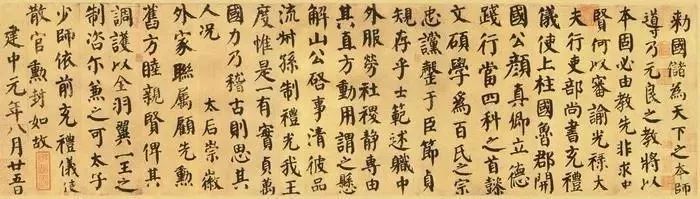 勑國儲為天下之本師
導乃元良之教將以
本固必由教先非求中
賢何以審諭光祿大
夫行吏部尚書充禮
儀使上柱國魯郡開
國公顏真卿立德
踐行當四科之首懿
文碩學為百氏之宗
忠讜罄于臣節貞
規存乎士範述軄中
外服勞社稷靜專由
其直方動用謂之懸
解山公啓事清彼品
流叔孫制禮光我王
度惟是一有實貞萬
國力乃稽古則思其
人况 太后崇徽
外家聯屬顧先勳
舊方睦親賢俾其
調護以全羽翼一王之
制咨尓兼之可太子
少師依前充禮儀使
散官勳封如故
建中元年八月廿五日